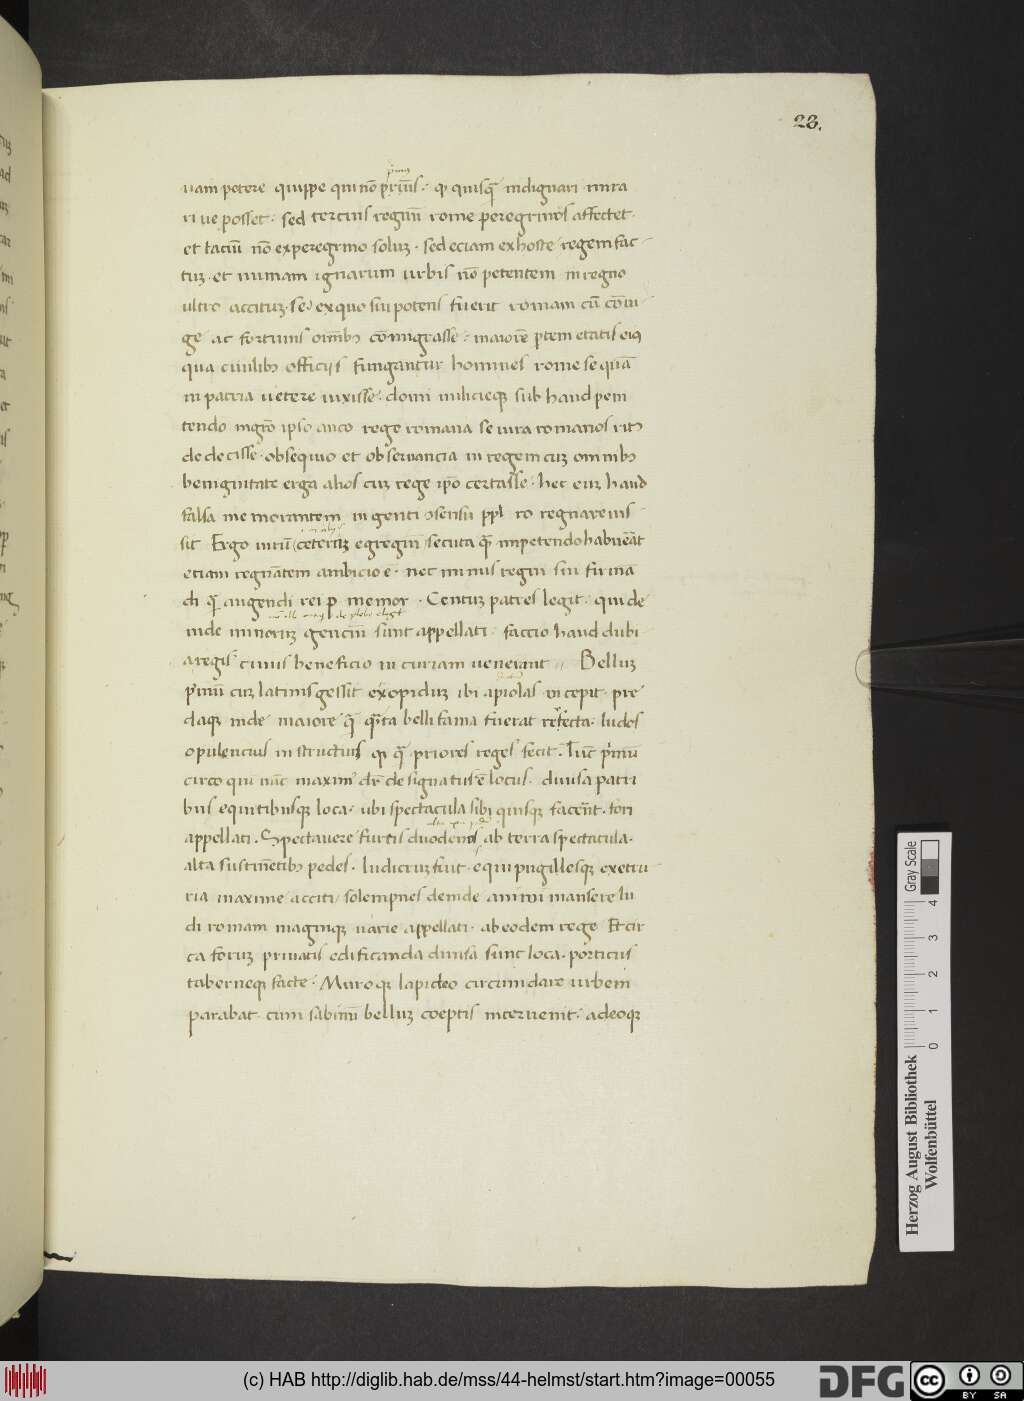 23.
primus
uam petere quippe qui nō prim̄s. qd quisq̄ indignari mira
ri ue posset. sed tercius regnū rome peregrinos affectet.
et taciū nō ex peregrino soluz. sed eciam ex hoste regem fac
tuz. et numam ignarum urbis nō petentem in regno
ultro accituz. se ex quo sui potens fuerit romam cū cōiu
ge ac fortunis oīmbꝫ cōmigrasse. maiorē ꝑtem etatis eiꝰ
qua ciuilibꝫ officijs fungantur homines rome se quā
in patria uetere uixisse. domi milicieqꝫ sub haud peni
tendo mgrō ipso anco rege romana se iura romanos ritꝰ
dedecisse. obsequio et obseruancia in regem cuz omnibꝫ
benignitate erga alios cuz rege ip̄o certasse. hec euz haud
falsa memorantem ingenti ꝯsensu ppl ro regnare ius
sit Ergo uirū ceteraꝫ egregiū secuta q̄ inpetendo habuēat
etiam regnātem ambicio ē. nec minus regni sui firma
di q̄ augendi rei p memor. Centuz patres legit. qui de
inde minoruꝫ genciū sunt appellati. faccio haud dubi
a regis cuius beneficio in curiam uenerant Belluꝫ
pʼmū cuꝫ latinis gessit ex opiduꝫ ibi apiolas ui cepit. pre
daqꝫ inde maiore q̄ q̄ta belli fama fuerat refecta. ludos
opulencius instructiusqꝫ q̄ priores reges fecit. Tūc pʼmū
circo qui nūc maximꝰ dr̄ designatus ē locus. diuisa patri
bus equitibusqꝫ loca. ubi spectacula sibi quisqꝫ facēnt. fori
appellati. Spectauere furtis duodenos ab terra spectacula.
alta sustinētibꝫ pedes. ludicruꝫ fuit. equi pugillesqꝫ ex etru
ria maxime acciti solempnes deinde annui mansere lu
di romani magniqꝫ uarie appellati. ab eodem rege Et cir
ca foruꝫ priuatis edificanda diuisa sunt loca. porticus
taberneqꝫ facte. Muro qꝫ lapideo circumdare urbem
parabat. cum sabinū belluꝫ coeptis interuenit. adeoqꝫ
Gray Scale
0 1 2 3 4
Herzog August Bibliothek
Wolfenbüttel
(c) HAB http://diglib.hab.de/mss/44-helmst/start.htm?image=00055
DFG
cc BY SA